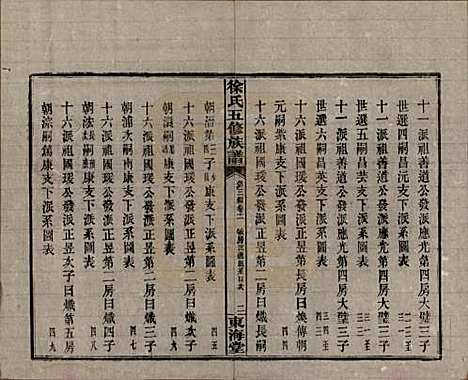 十一派祖善道公發派應光第四房大璧三子
世選四嗣昌沅支下派系圖表
十一派祖善道公發派應光第四房大璧三子
世選五嗣昌英支下派系圖表
十一派祖善道公發派應光第四房大璧三子
世選六嗣昌其支下派系圖表
十六派祖國瑛公發派正昱第一房日熾長傳朝
元嗣紫康支下派系圖表
十六派祖國瑛公發派正昱第二房日熾長嗣
徐氏五修族譜
東海堂
朝浦第三子
朝溪嗣
支下派系圖表
四五
十六派祖國瑛公發派正昱第二房日熾三子
朝浦次嗣南康支下派系圖表
四七
十六派祖國瑛公發派正昱第二房日熾四子
支下派系圖表
四八
十六派祖國瑛公發派正昱次子日熾第五房
朝淙嗣篤康支下派系圖表
四九